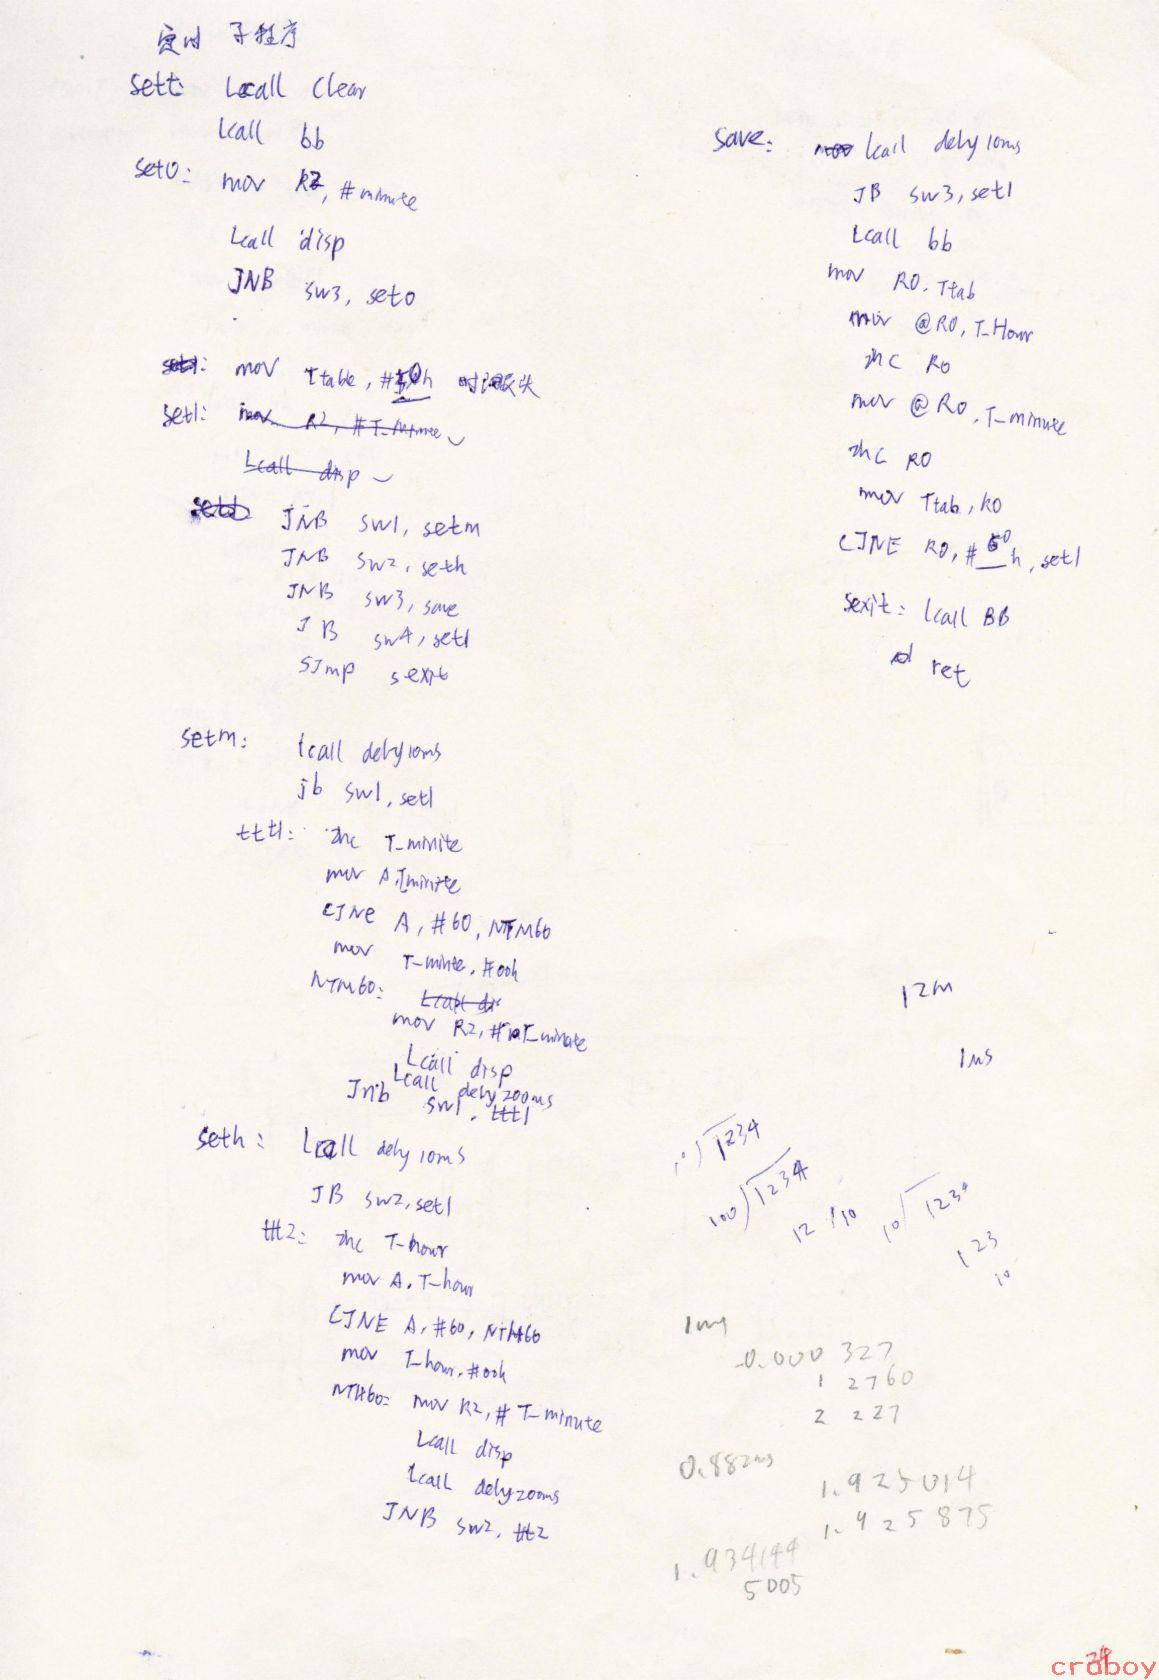 定时 子程序
sett: Lcall Clear
Lcall bb
set0: mov R2, #minute
Lcall disp
JNB sw3, set0
mov Ttable, #50h
set1: mov R2, #T_minute
Lcall disp
JNB sw1, setm
JNB sw2, seth
JNB sw3, save
JB sw4, set1
SJmp sexit
setm: lcall dely10ms
jb sw1, set1
ttt1: inc T_minite
mov A, Tminite
CJNE A, #60, NTM60
mov T_minte, #00h
NTM60: Lcall di
mov R2, #T_minute
Lcall disp
Lcall dely200ms
Jnb sw1, ttt1
seth: Lcall dely10ms
JB sw2, set1
tt2: inc T_hour
mov A, T_hour
CJNE A, #60, NTH60
mov T_hour, #00h
NTH60: mov R2, #T_minute
Lcall disp
Lcall dely200ms
JNB sw2, tt2
save: mov lcall dely10ms
JB sw3, set1
Lcall bb
mov R0, Ttab
mov @R0, T_Hour
inc R0
mov @R0, T_minute
inc R0
mov Ttab, R0
CJNE R0, #60h, set1
sexit: lcall BB
ret
12M
1ms
10)1234
100)1234
12 /10
10)1234
123
10
1ms
-0.000 327
1 2760
2 227
0.882ms
1.925014
1.925875
1.934144
5005
24
craboy